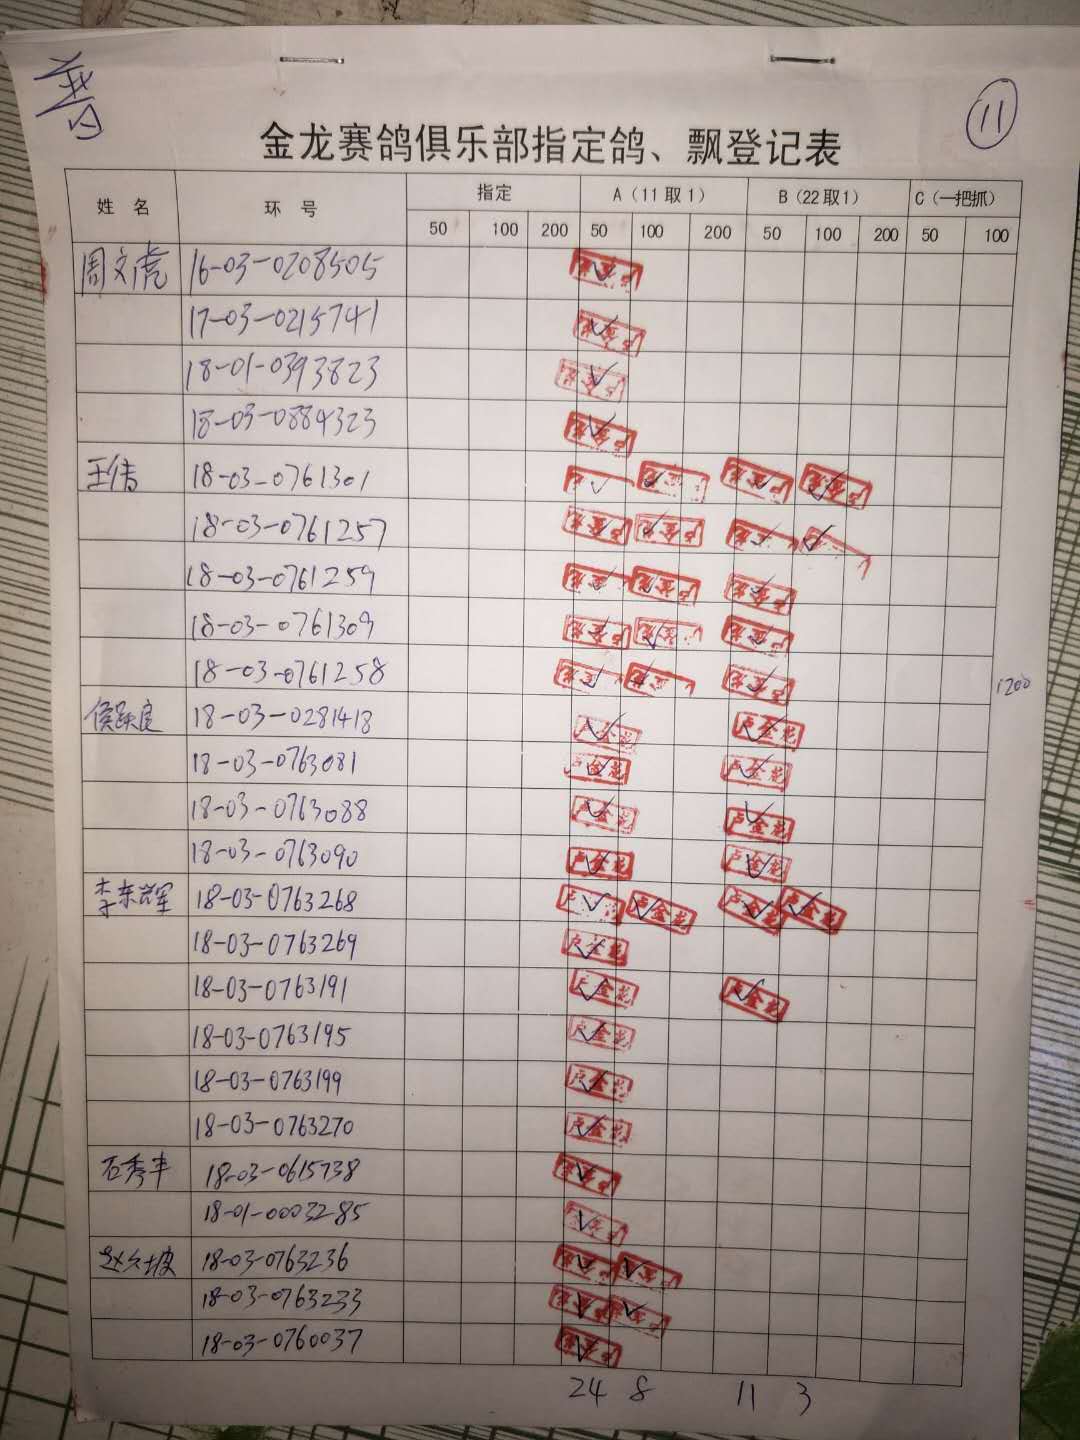 普
11
金龙赛鸽俱乐部指定鸽、飘登记表
姓 名 环 号 指定 A（11取1） B（22取1） C（一把抓）
50 100 200 50 100 200 50 100 200 50 100
周文虎 16-03-0208505
17-03-0215741
18-01-0393823
18-03-0884323
王伟 18-03-0761301
18-03-0761257
18-03-0761259
18-03-0761309
18-03-0761258
1200
侯跃良 18-03-0281418
18-03-0763081
18-03-0763088
18-03-0763090
李东辉 18-03-0763268
18-03-0763269
18-03-0763191
18-03-0763195
18-03-0763199
18-03-0763270
石秀丰 18-03-0615738
18-01-0003285
18-03-0763236
18-03-0763233
18-03-0760037
24 8 11 3